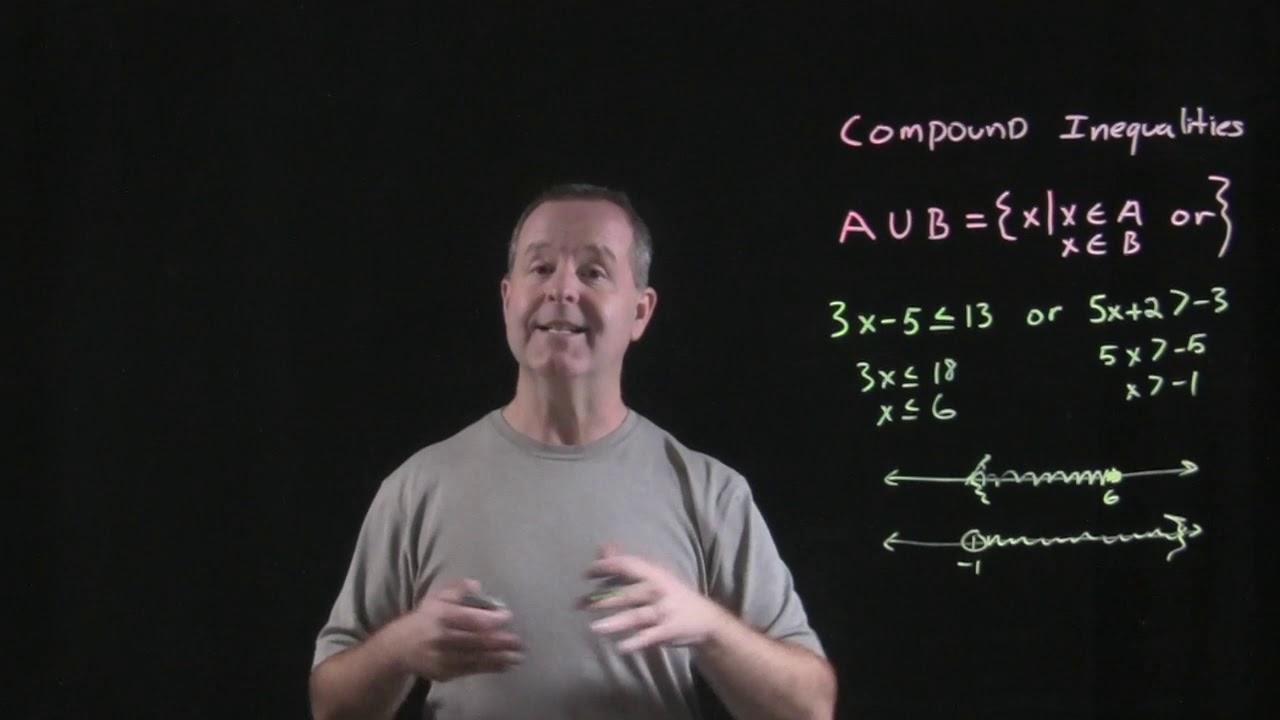 Compound Inequalities
A U B = {x | x ∈ A or}
x ∈ B
3x - 5 ≤ 13 or 5x + 2 > -3
3x ≤ 18 5x > -5
x ≤ 6 x > -1
6
-1